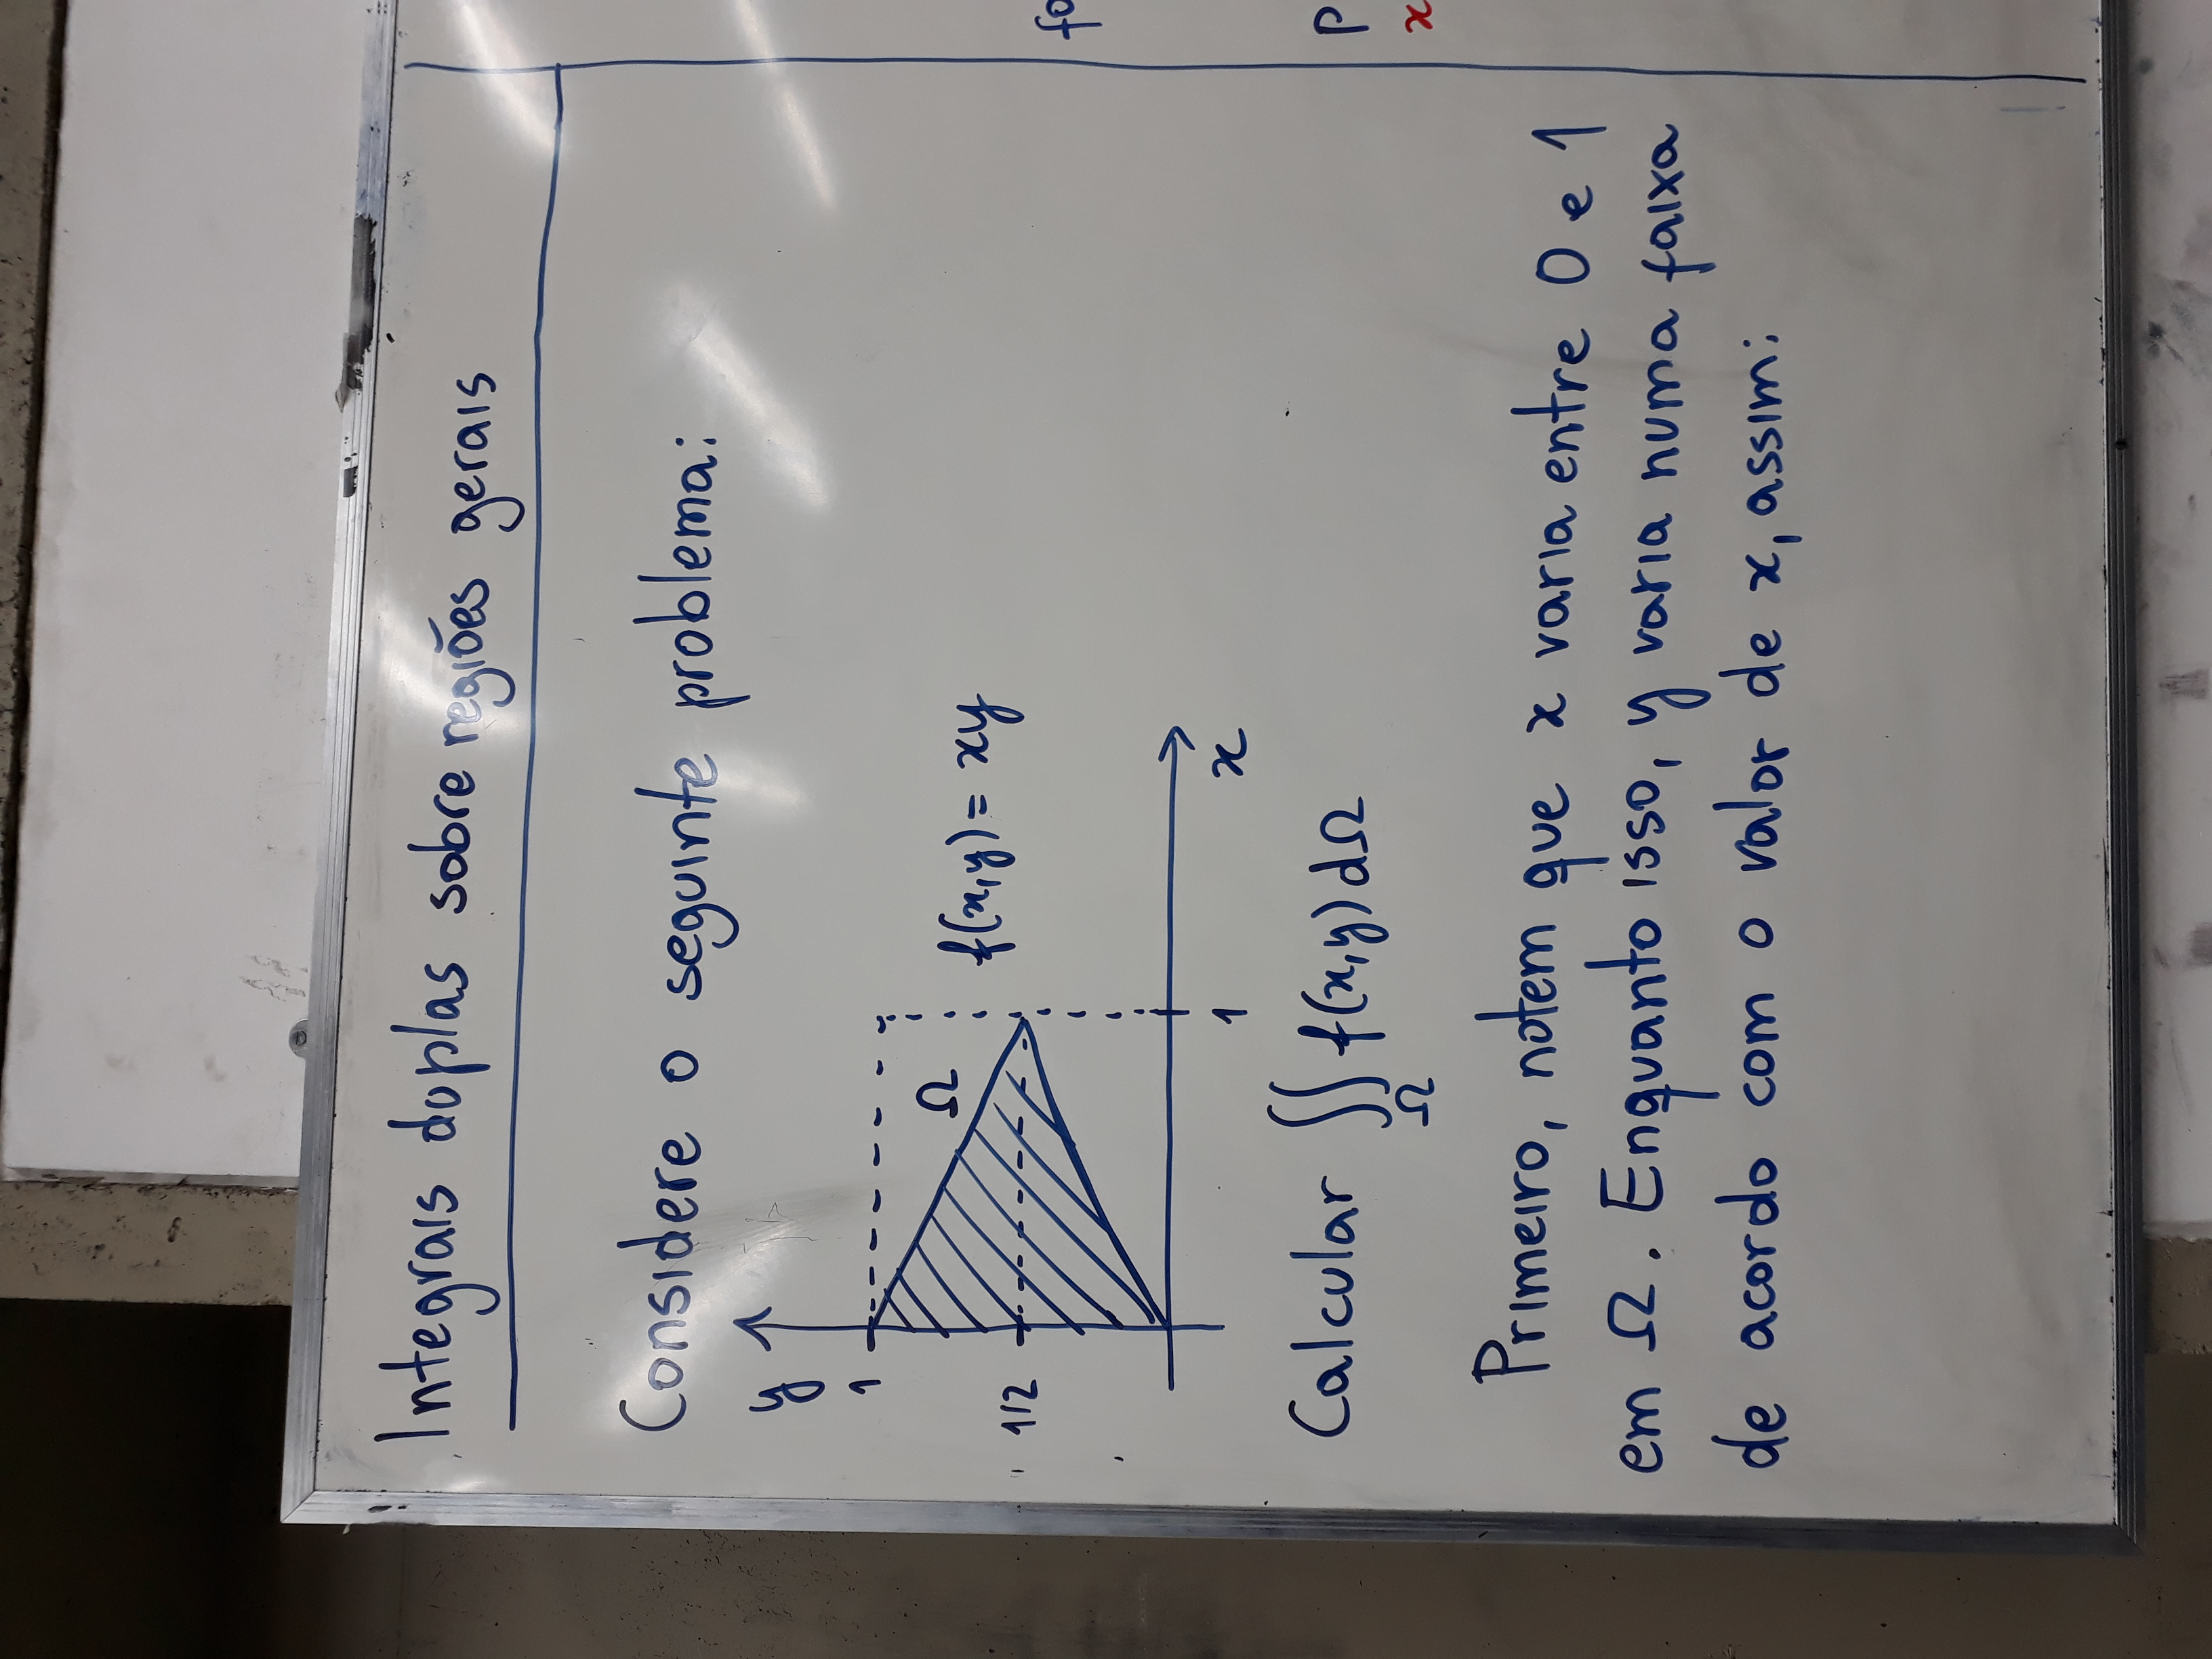 Integrais duplas sobre regiões gerais
Considere o seguinte problema:
y
1
Ω
f(x,y) = xy
1/2
1
x
Calcular ∬ f(x,y) dΩ
Ω
Primeiro, notem que x varia entre 0 e 1
em Ω. Enquanto isso, y varia numa faixa
de acordo com o valor de x, assim:
fo
P
x